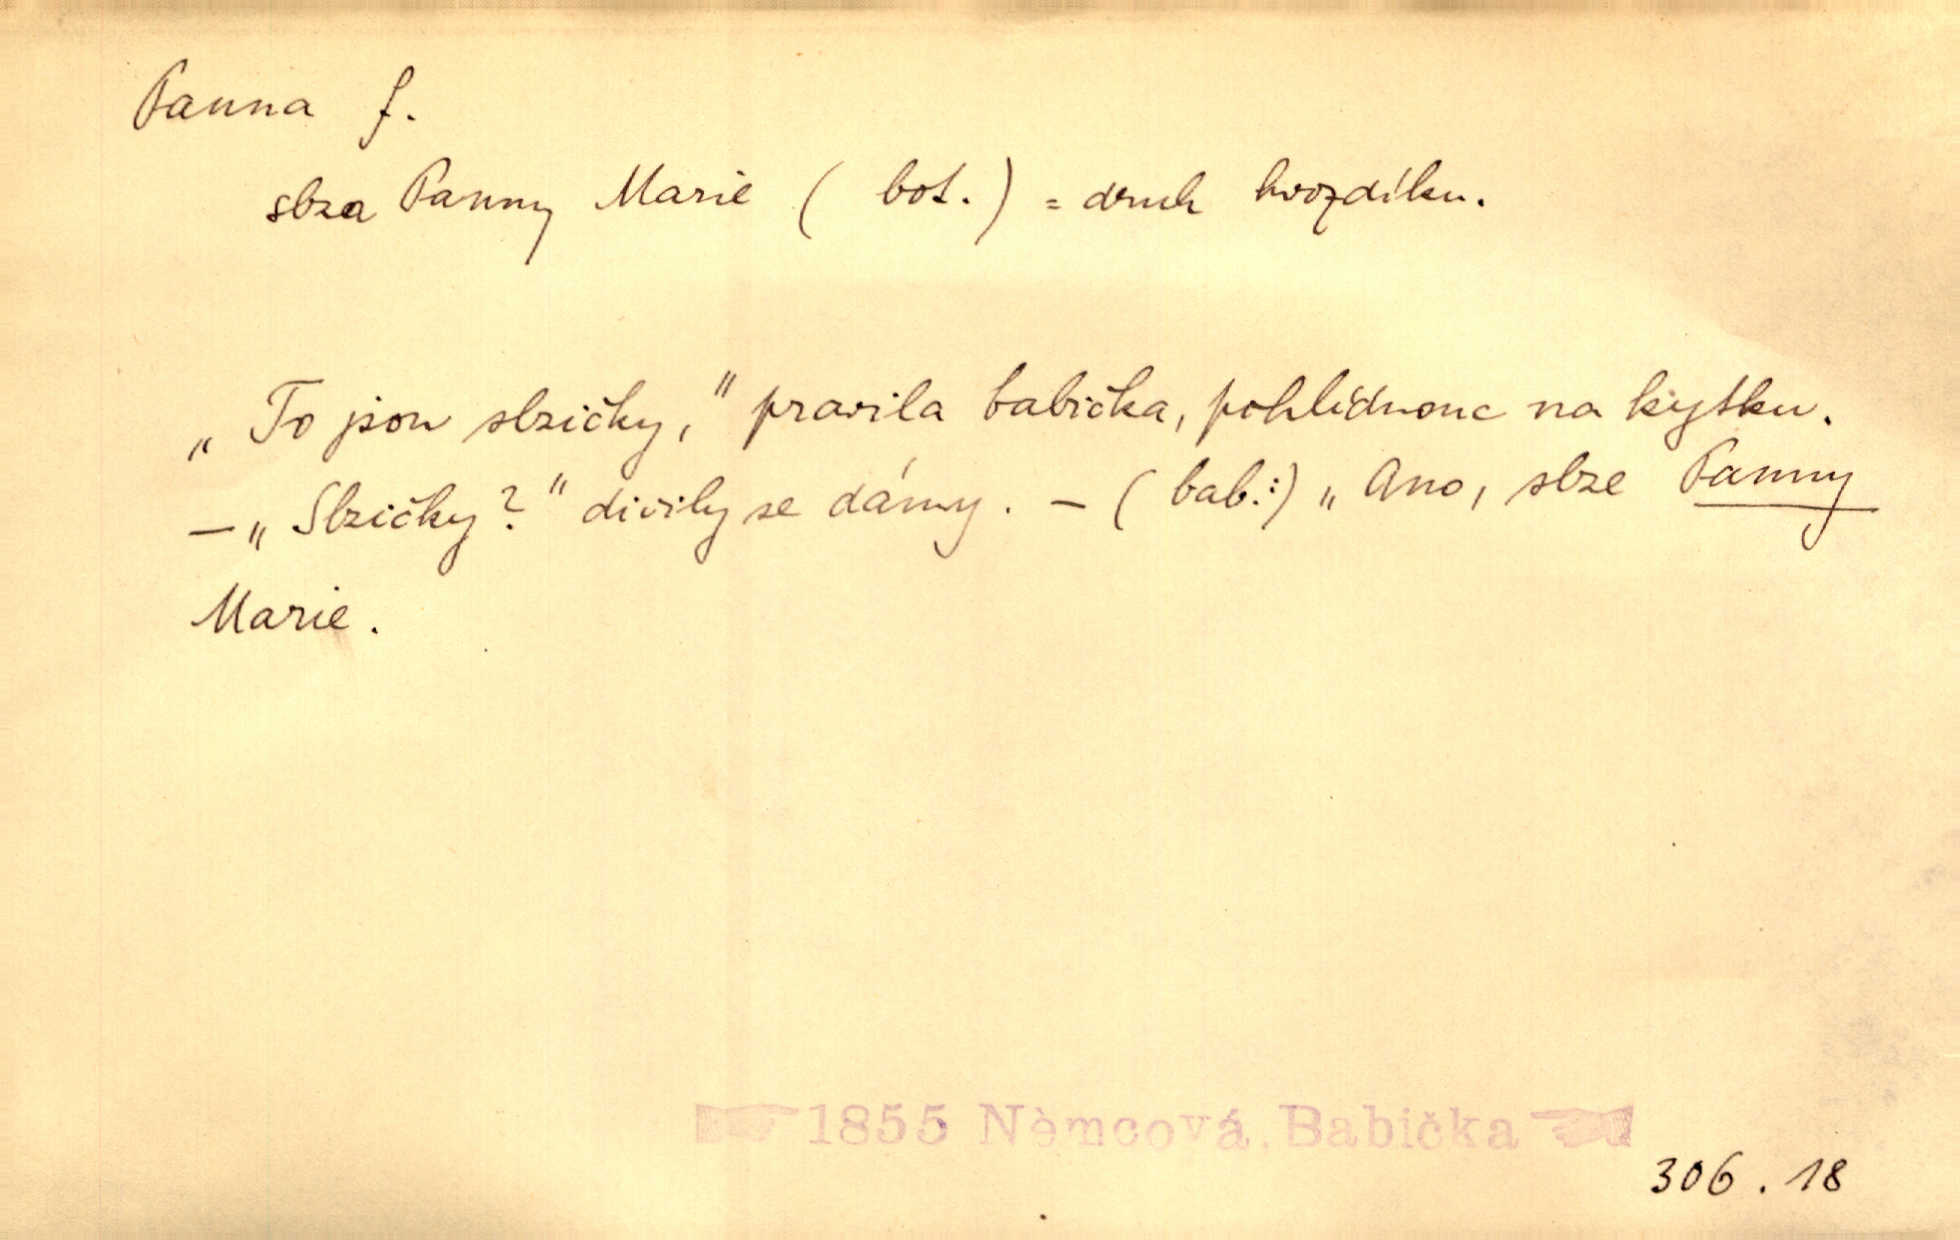 Panna f.
slza Panny Marie (bot.) = druh hvozdíku.
„To jsou slzičky," pravila babička, pohlídnouc na kytku.
– „Slzičky?" divily se dámy. – (bab.:) „Ano, slze Panny
Marie.
1855 Němcová, Babička
306.18